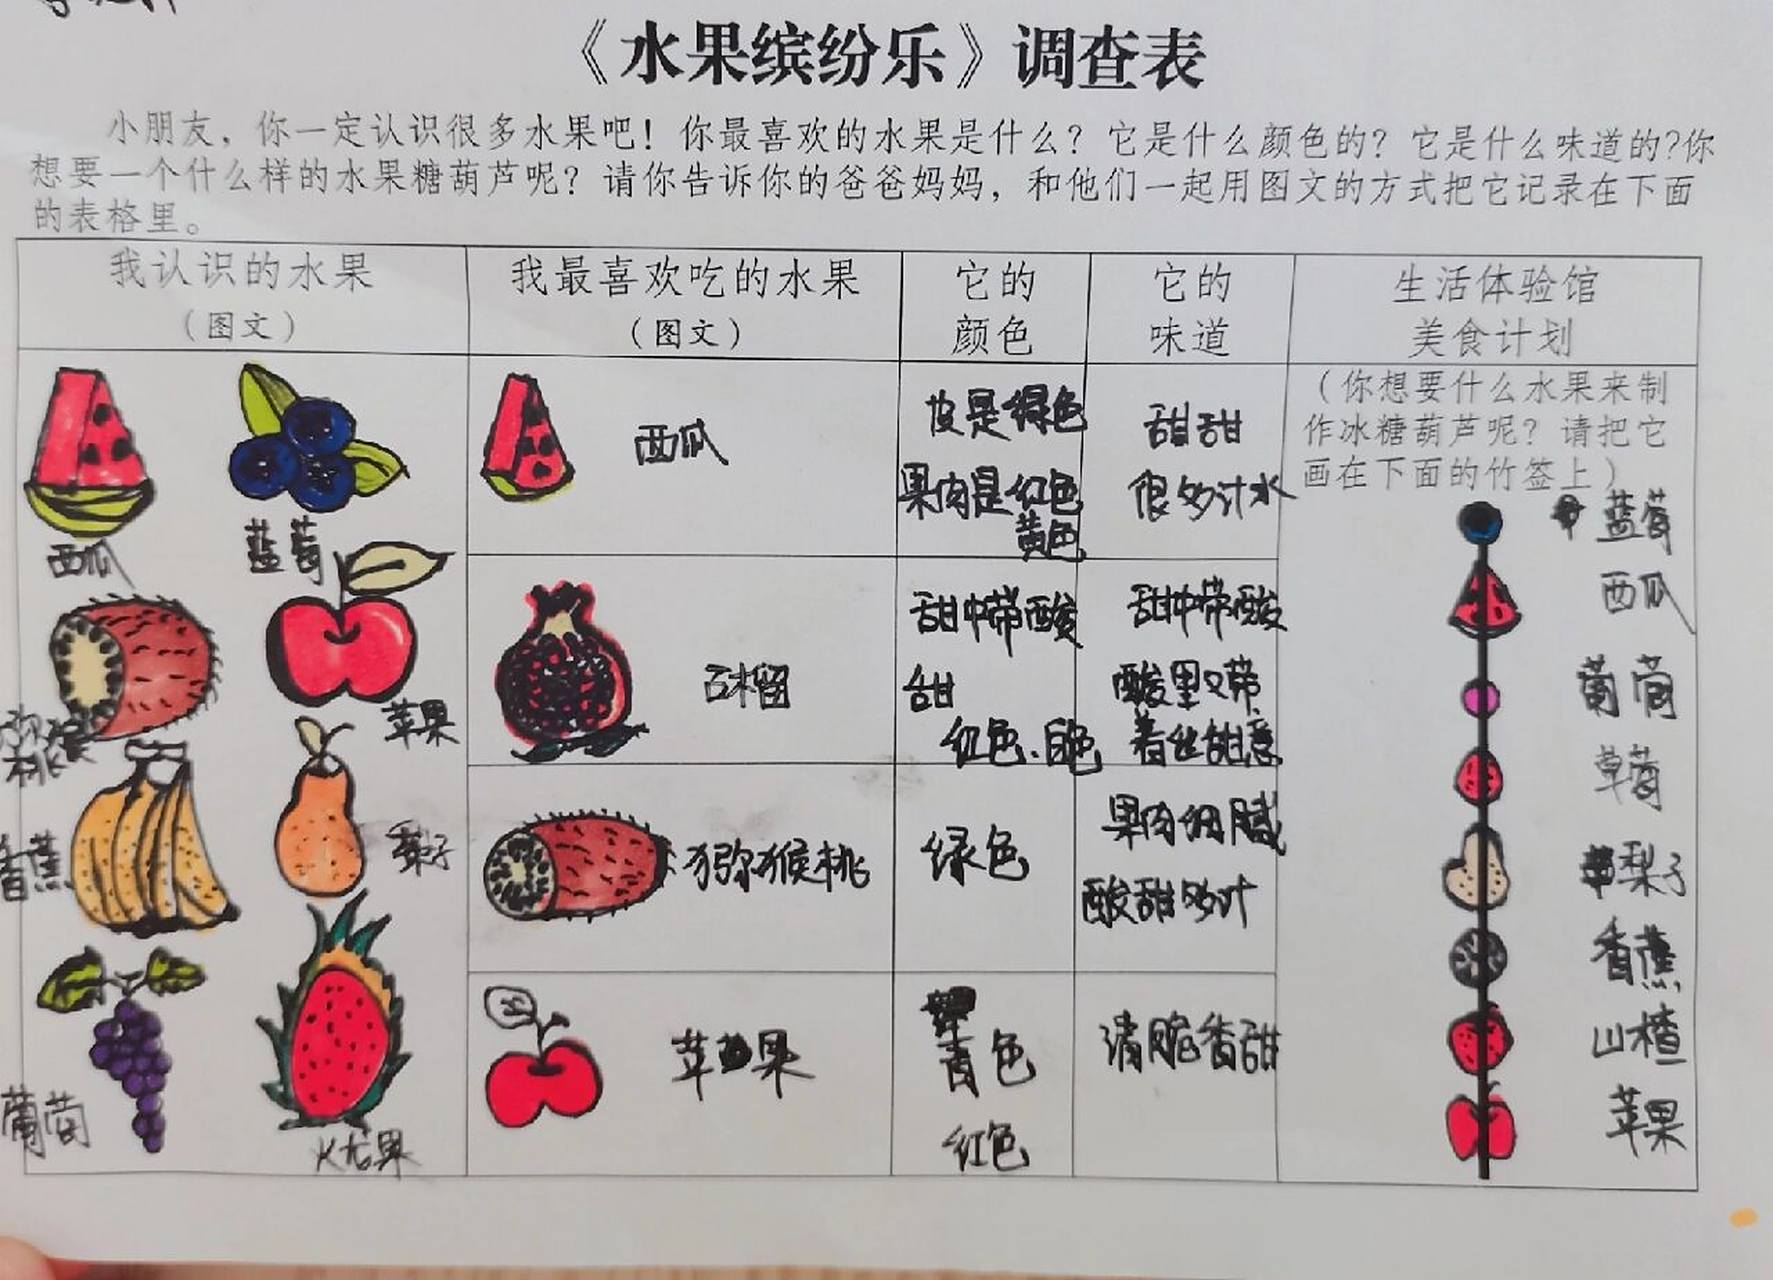 《水果缤纷乐》调查表
小朋友，你一定认识很多水果吧！你最喜欢的水果是什么？它是什么颜色的？它是什么味道的?你
想要一个什么样的水果糖葫芦呢？请你告诉你的爸爸妈妈，和他们一起用图文的方式把它记录在下面
的表格里。
我认识的水果
（图文）
我最喜欢吃的水果
（图文）
它的
颜色
它的
味道
生活体验馆
美食计划
西瓜
蓝莓
猕猴
桃
苹果
香蕉
梨子
葡萄
火龙果
西瓜
皮是绿色
果肉是红色
黄色
甜甜
很多汁水
石榴
甜中带酸
甜
红色.白色
甜中带酸
酸里又带
着丝甜意
猕猴桃
绿色
果肉细腻
酸甜多汁
苹果
青色
红色
清脆香甜
（你想要什么水果来制
作冰糖葫芦呢？请把它
画在下面的竹签上）
蓝莓
西瓜
葡萄
草莓
梨子
香蕉
山楂
苹果